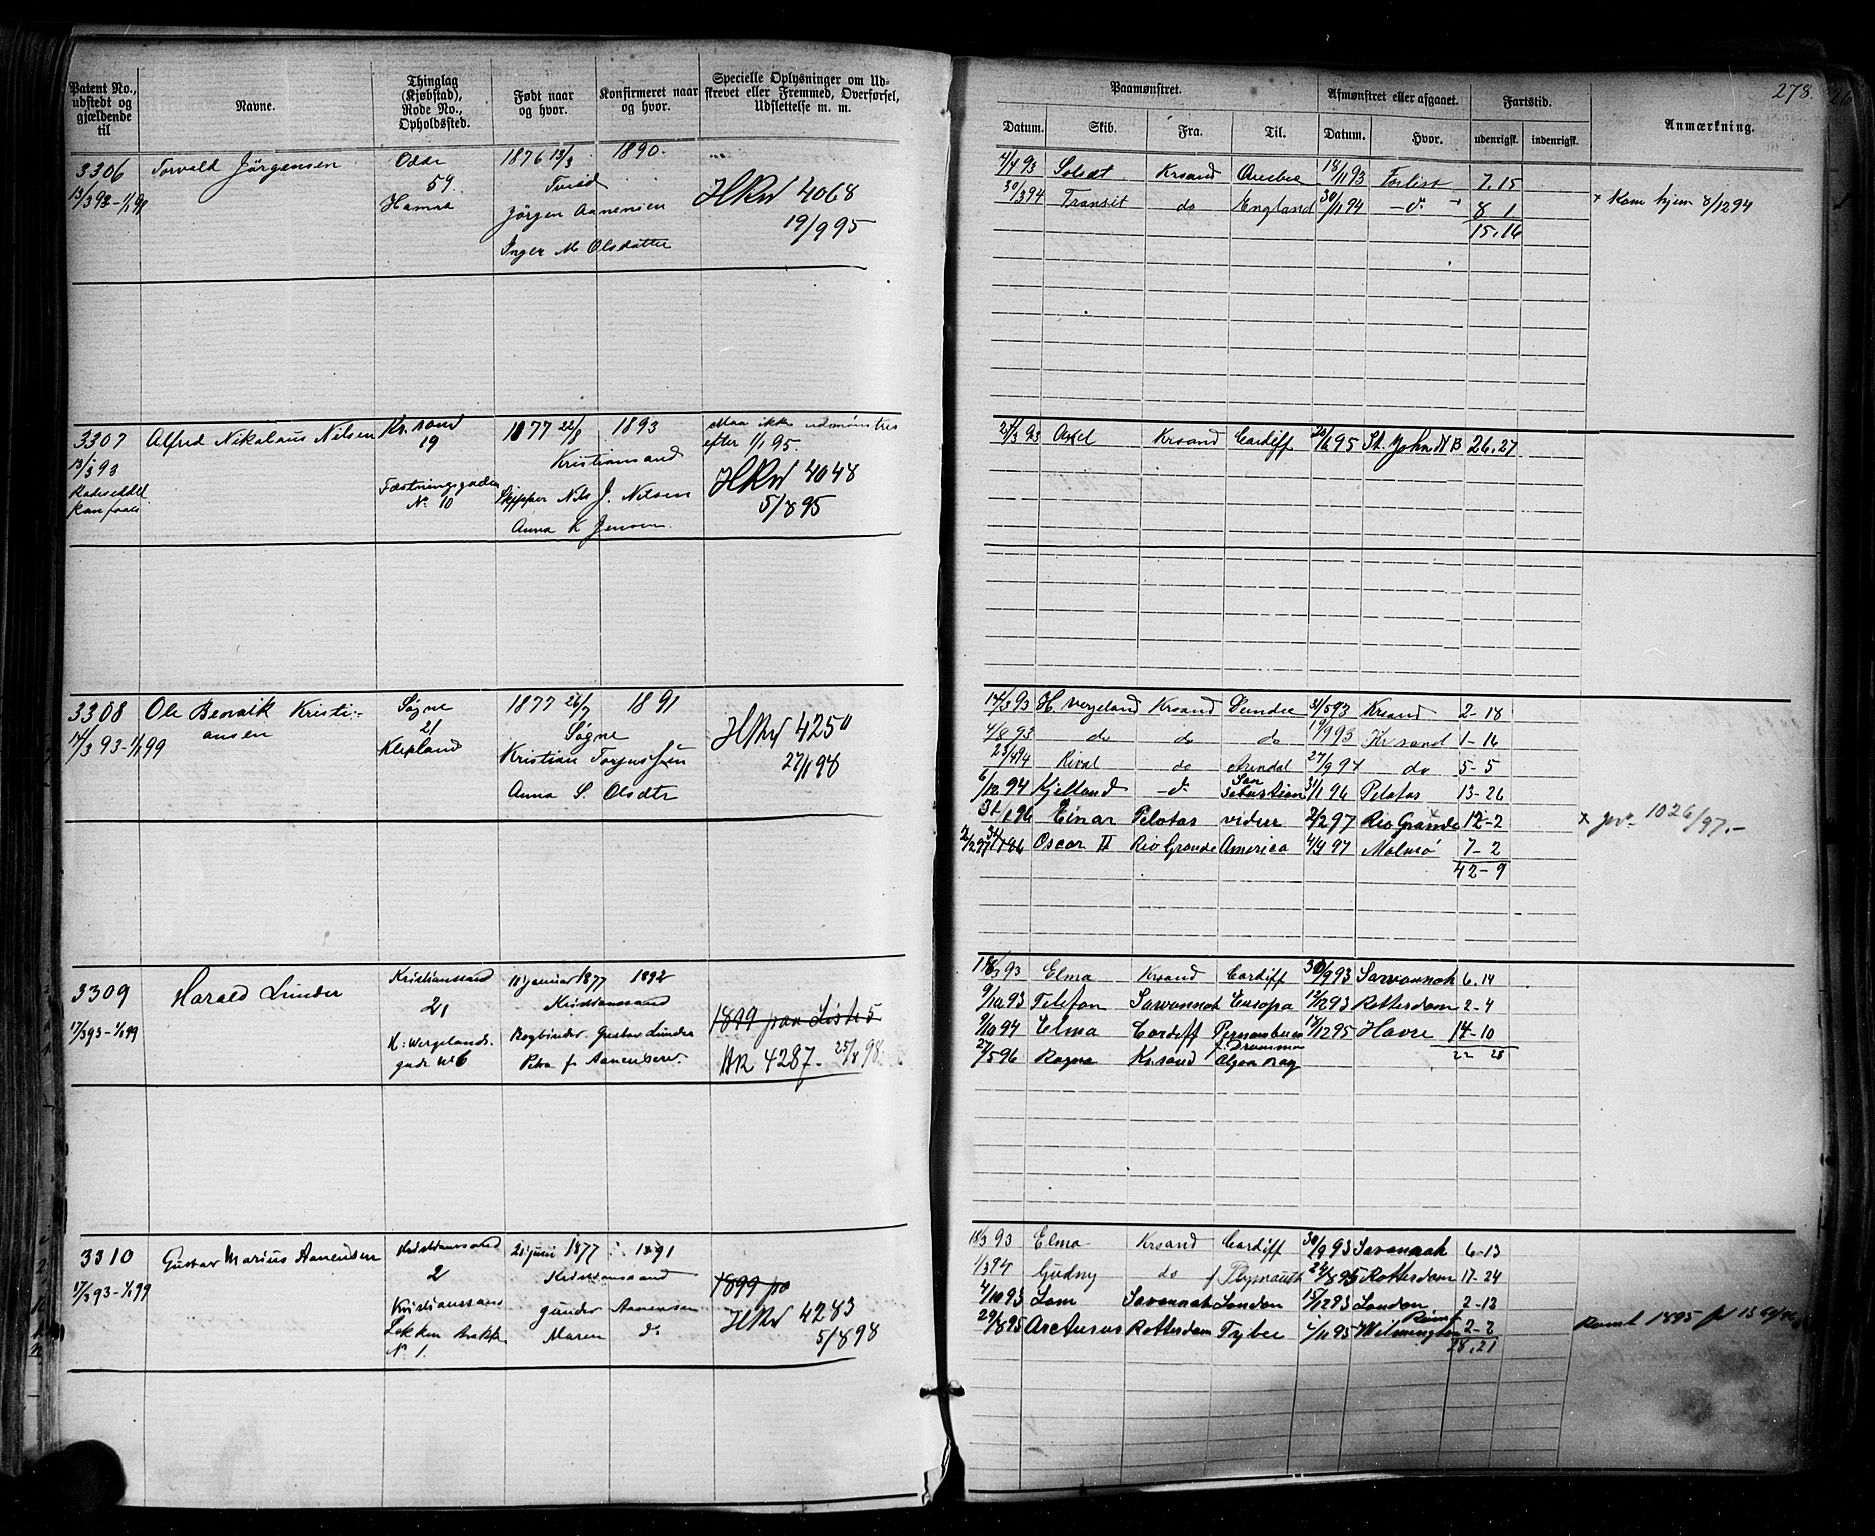 278.
Patent No., udstedt og gjældende til | Navne. | Thinglag (Kjøbstad), Rode No., Opholdssted. | Født naar og hvor. | Konfirmeret naar og hvor. | Specielle Oplysninger om Udskrevet eller Fremmed, Overførsel, Udslettelse m. m.
Paamønstret. | Afmønstret eller afgaaet. | Fartstid. | Anmærkning.
Datum. | Skib. | Fra. | Til. | Datum. | Hvor. | udenrigsk. | indenrigsk.
3306 Torvald Jörgensen Odde 1876 13/3 1890.
59. Tveid
Hamna Jörgen Aanensen HRul 4068
Inger M Olsdatter 19/9 95
4/4 93 Krsand Quebec 18/11 93 Forlist 7.15
30/3 94 Transit do England 30/11 94 8 1 × Kom hjem 8/12 94
15.16
3307 Alfred Nikolaus Nilsen Kr.sand 1877 22/8 1893 Maa ikke udmønstres
13/3 93 19 Kristiansand efter 1/1 95.
Fæstningsgaden Skipper Nils J. Nilsen HRul 4048
No 10 Anna K Jensen 5/8 95
21/3 93 Axel Krsand Cardiff 20/6 95 St. John N B 26.27
3308 Ole Benvik Kristi- Søgne 1877 26/7 1891
ansen 21 Søgne HRul 4250
17/3 93-1/1 99 Klepland Kristian Torjussen 27/1 98
Anna S. Olsdtr
17/3 93 H Vergeland Krsand Dundee 31/5 93 Krsand 2-18
4/8 93 do do do 19/9 93 Kr.sand 1-16
23/4 94 Rival do Arendal 27/9 94 do 5-5
6/10 94 Kjelland San Sebastian 31/1 96 Pelotas 13-26
31/1 96 Einar Pelotas videre 2/2 97 Rio Grande 12-2 × 1026/97.-
2/2 97 Oscar II Rio Grande America 4/9 97 Malmö 7-2
42-9
3309 Harald Linder Kristianssand 10 januar 1877 1892
17/3 93-1/1 99 21 Kristianssand 1899 paa Liste 5
H: Wergelands- Bogbinder Gustav Linder
gade No 6 Petra f. Aanensen AR 4287. 25/8 98.
18/3 93 Elma Krsand Cardiff 30/9 93 Savannah 6.14
9/10 93 Telefon Savannah Europa 12/12 93 Rotterdam 2-4
9/10 94 Elma Cardiff Pernambuco 18/12 95 Havre 14-10
22 28
27/5 96 Ragna Kr.sand Algoa Bay
3310 Gustav Marius Aanensen Kristianssand 21 juni 1877 1891
17/3 93-1/1 99 2 Kristianssand 1899 pa
Kristianssand Gunder Aanensen HRul 4283
Maren do 5/8 98
No 1.
18/3 93 Elma Krsand Cardiff 30/9 93 Savannah 6-13
1/3 94 Gudny do Plymouth 24/8 95 Rotterdam 17-24
4/10 93 Lom Savannah London 15/12 93 London 2-12
29/8 95 Arcturus Rotterdam Tybee Wilmington 2-2
28.21